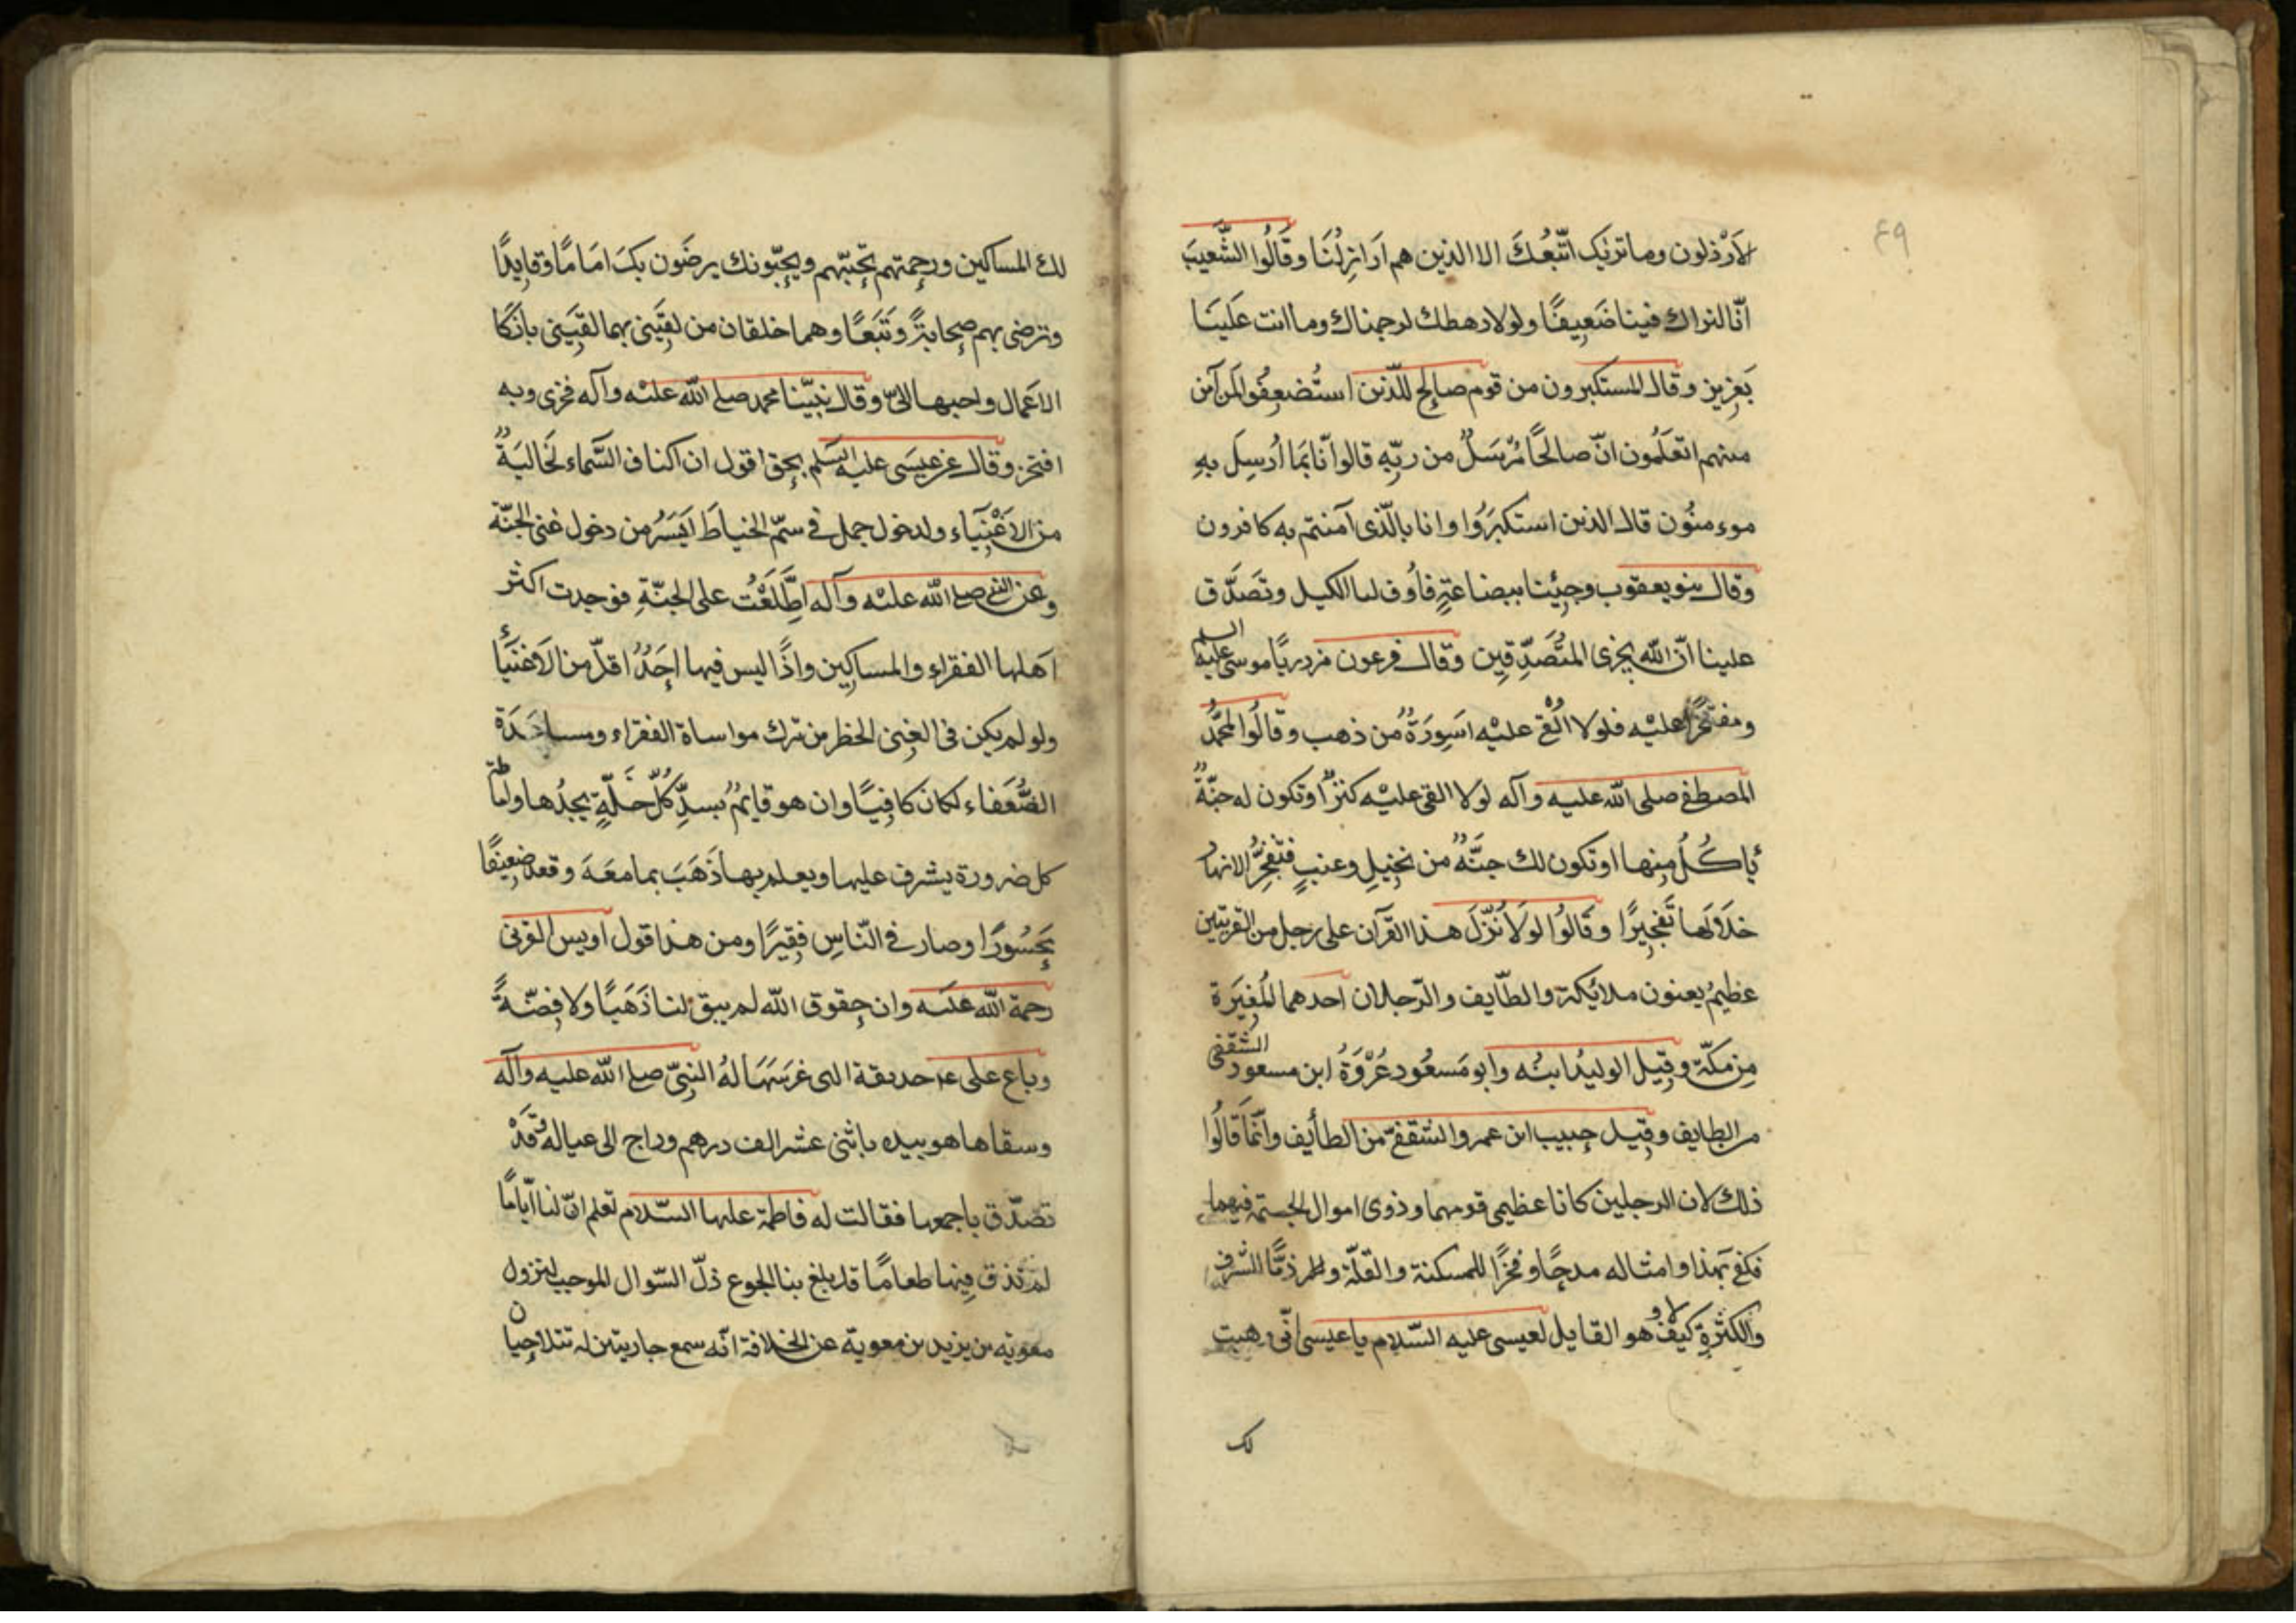 ٤٩
لأَرْذلون وما نريك اتّبَعُكَ الا الذين هم اَرَازِلُنَا وقَالُوا الشّعيبَ
انّا لنراك فينا ضَعِيفًا ولولا رهطك لرجمناك وما انت علَينَا
بَعزيز وقال المستكبرون من قوم صالح للّذين استُضعِفُوا لمن آمن
منهم اتعَلَمُون انّ صالحًا مُرْسَلٌ من ربّهِ قالوا انّا بمَا اُرسِلَ بهِ
موءمنُون قال الذين استكبَرُوا وانا بالّذى آمنتم به كافرون
وقال بنو يعقوب وجِئْنا ببضاعَةٍ فاَوُف لنا الكيل وتَصَدَّق
علينا انّ الله يجزى المتَصَدِّقِين وقال فرعون مزدريًا موسى عليه السلم
ومفتخرًا عليْه فلولا اُلْقى عليْه اَسَوِرَةٌ مُن ذهب وقالُوا لمحمّدُ
المصطفى صلى الله عليه وآله لولا القى عليْه كنزٌ او تكون له جنّةٌ
يَاكُلُ مِنها او تكون لك جنَّةٌ من نخيلٍ وعنبٍ فتفجِّرُ الانهار
خلالَها تَفجِيرًا وقَالُوا لولاَ نُزّلَ هذا القرآن على رجل من القريتين
عظيمٌ يعنون ملائكة والطّايف والرّجلان احدهما المُغيَرَة
مِن مكّة وقِيل الوليدُ ابنُه وابو مَسعُود عُرْوَةُ ابن مسعود الثقفى
من الطايف وقِيل حبيب ابن عمرو الثقفىّ من الطأيف وانّمَا قَالُوا
ذلك لان الرجلين كانا عظيمى قومهما وذوى اموال الجسمة فيهما
فكفى بَهذا وامثاله مدحًا وفخرًا للمسكنة والقلّة ولا ذمًّا للشرف
والكثرةِ كيفَ لا وهو القايل لعيسى عليه السّلام يا عيسى انّى وهبت
لك
لك المساكين ورحمتهم تحبّهم ويحبّونك يرضَون بكَ امَامًا وقايِدًا
وترضى بهم صحابةً وتَبَعًا وهما خلقان من لقيَنى بهما لقيَنى بازكا
الاعمال واحبها الىّ وقال نبيّنا محمد صلى الله عليْه وآله فخرى وبه
افتخر وقال عزعيسَى عليه السلم بحق اقول ان اكناف السّماء لخاليَةٌ
من الاَغْنِيَاء ولدخول جمل فى سمّ الخياط اَيَسَرُ من دخول غنى الجنّة
وعن النبى صلى الله عليْه وآله اطَّلَعْتُ على الجنّةِ فوجدت اكثر
اَهلها الفقراء والمساكين واذًا ليس فيها اَحَدٌ اقلّ من الاَغنيَأ
ولو لم يكن فى الغِنى الخطر من ترك مواساة الفقراء ومساعَدَة
الضُّعَفاء لكان كافِيًا وان هو قايمٌ بسدِّ كُلِّ خَلّةٍ يجدُها واماطة
كل ضرورة يشرف عليها ويعلم بها ذَهَبَ بما معَهَ وقعد ضعيفًا
يَحسُورًا وصار فى النّاسِ فِقيرًا ومن هذا قول اويس القرنى
رحمة الله عليه وان حقوق الله لم يبق لنا ذَهَبًا ولا فِضّةً
وباع على ع حديقة التى غرَسَهَا لهُ النبىّ صلى الله عليه وآله
وسقاها هو بيده باثنى عشر الف درهم وراح الى عياله وُقَدْ
تصَدّق باجمعها فقالت له فاطمة عليها السّلام تعلم انّ لنا ايّامًا
لم نذق فيها طعامًا قد بلغ بنا الجوع ذلّ السّوال الموجب لنزول
معوية بن يزيد بن معوية عن الخلافة انّه سمع جاريتين له تتلاحيان